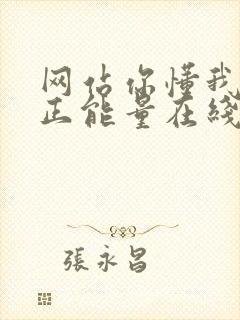 网站你懂我
正能量在线
張永昌